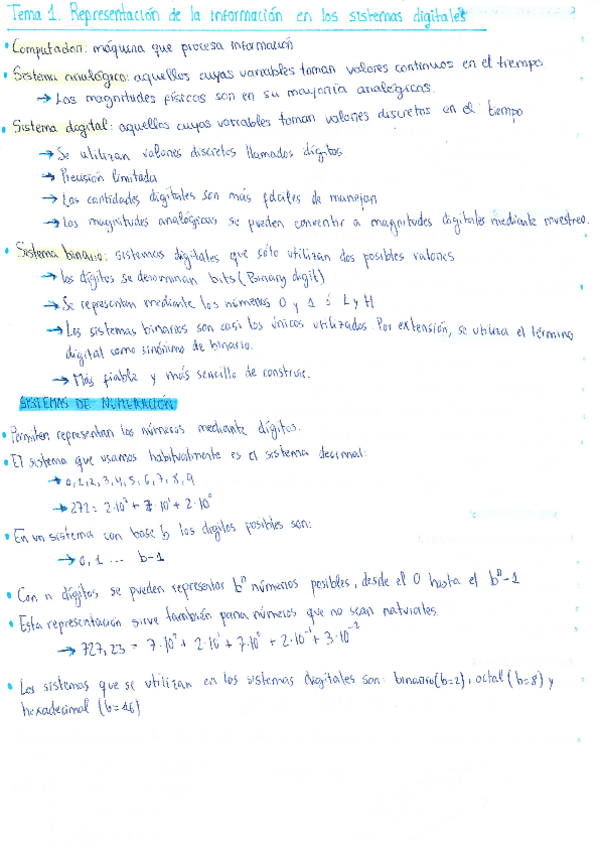 Tema 1. Representación de la información en los sistemas digitales
• Computador: máquina que procesa información
• Sistema analógico: aquellos cuyas variables toman valores continuos en el tiempo
→ Las magnitudes físicas son en su mayoría analógicas.
• Sistema digital: aquellos cuyas variables toman valores discretos en el tiempo
→ Se utilizan valores discretos llamados dígitos
→ Precisión limitada
→ Las cantidades digitales son más fáciles de manejar
→ Las magnitudes analógicas se pueden convertir a magnitudes digitales mediante muestreo.
• Sistema binario: sistemas digitales que sólo utilizan dos posibles valores
→ Los dígitos se denominan bits (Binary digit)
→ Se representan mediante los números 0 y 1 ó L y H
→ Los sistemas binarios son casi los únicos utilizados. Por extensión, se utiliza el término
digital como sinónimo de binario.
→ Más fiable y más sencillo de construir.
SISTEMAS DE NUMERACIÓN
• Permiten representar los números mediante dígitos.
• El sistema que usamos habitualmente es el sistema decimal:
→ 0,1,2,3,4,5,6,7,8,9
→ 272 = 2·10² + 7·10¹ + 2·10⁰
• En un sistema con base b los dígitos posibles son:
→ 0, 1 ... b-1
• Con n dígitos se pueden representar bⁿ números posibles, desde el 0 hasta el bⁿ-1
• Esta representación sirve también para números que no sean naturales.
→ 727,23 = 7·10² + 2·10¹ + 7·10⁰ + 2·10⁻¹ + 3·10⁻²
• Los sistemas que se utilizan en los sistemas digitales son: binario (b=2), octal (b=8) y
hexadecimal (b=16)